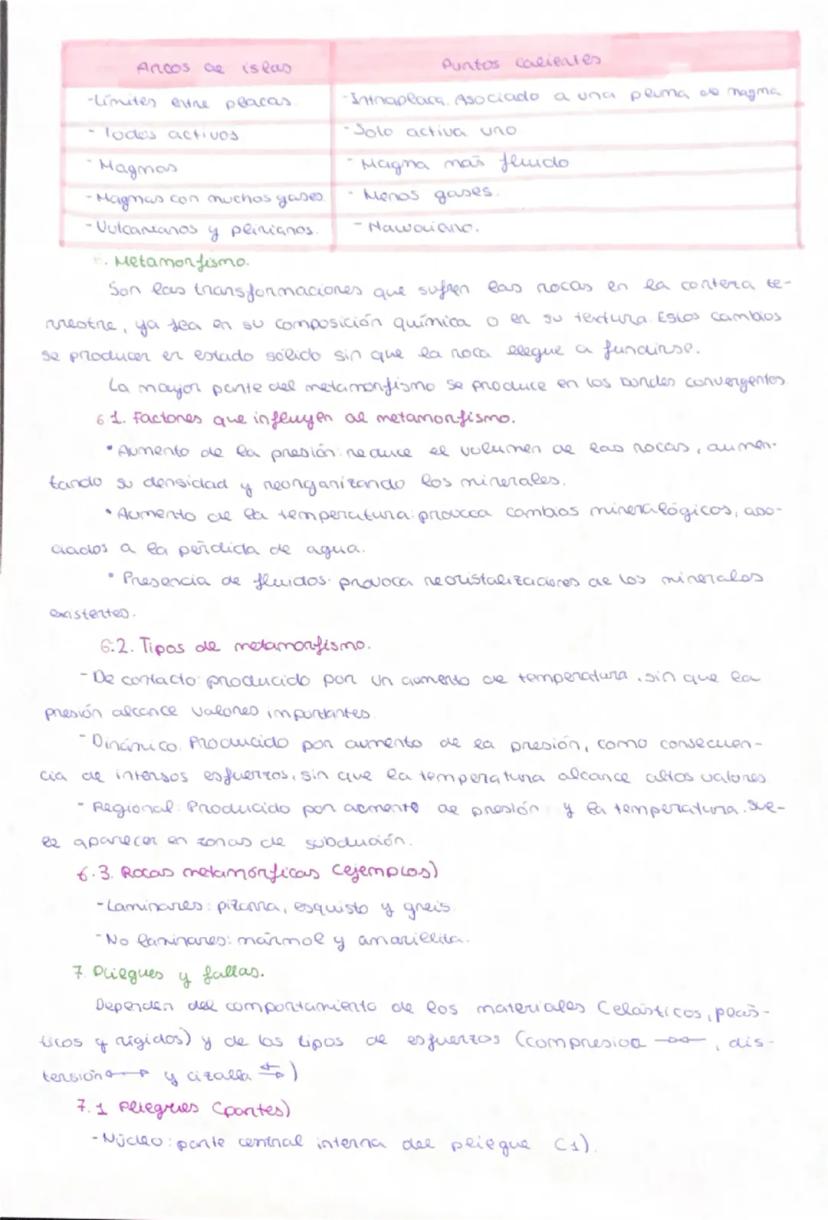 Arcos de islas | Puntos calientes
-Límites entre placas. | -Intraplaca. Asociado a una pluma de magma
- Todos activos | -Solo activa uno
- Magmas | - Magma más fluido
-Magmas con muchos gases. | - Menos gases.
-Vulcanianos y plinianos. | - Hawaiano.
6. Metamorfismo.
Son las transformaciones que sufren las rocas en la corteza te-
rrestre, ya sea en su composición química o en su textura. Estos cambios
se producen en estado sólido sin que la roca llegue a fundirse.
La mayor parte del metamorfismo se produce en los bordes convergentes
6.1. Factores que influyen al metamorfismo.
• Aumento de la presión: reduce el volumen de las rocas, aumen-
tando su densidad y reorganizando los minerales.
• Aumento de la temperatura: provoca cambios mineralógicos, aso-
ciados a la pérdida de agua.
• Presencia de fluidos: provoca recristalizaciones de los minerales
existentes.
6.2. Tipos de metamorfismo.
-De contacto: producido por un aumento de temperatura, sin que la
presión alcance valores importantes.
-Dinámico: Producido por aumento de la presión, como consecuen-
cia de intensos esfuerzos, sin que la temperatura alcance altos valores
- Regional: Producido por aumento de presión y la temperatura. Sue-
le aparecer en zonas de subdución.
6.3. Rocas metamórficas (ejemplos)
-Laminares: pizarra, esquisto y gneis.
-No laminares: mármol y
7. Pliegues y fallas.
Dependen del comportamiento de los materiales (elásticos, plás-
ticos y rígidos) y de los tipos de esfuerzos (compresion →←, dis-
tensión ←→ y cizalla ⇆)
7.1 Pliegues (partes)
-Núcleo: parte central interna del pliegue (1).